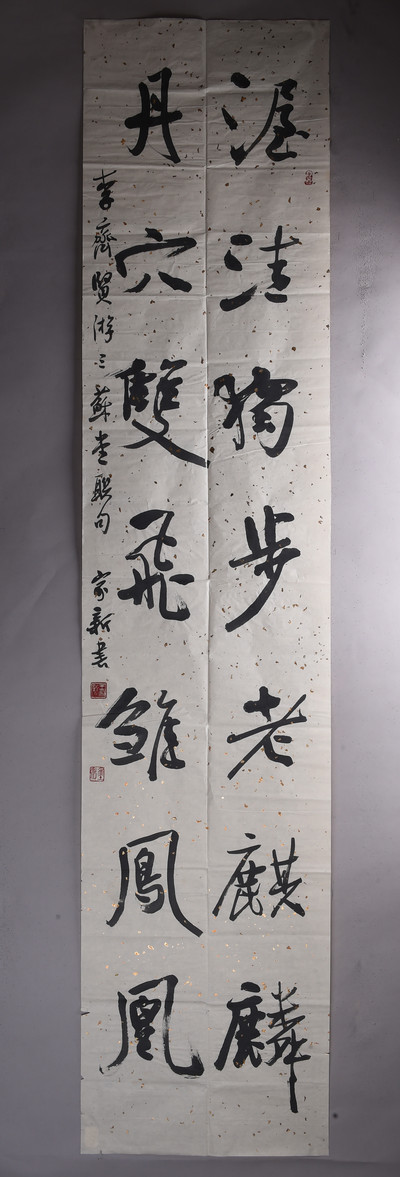 渥洼獨步老麒麟
丹穴雙飛雏鳳凰
李齊賢游三蘇堂聯句
家新書